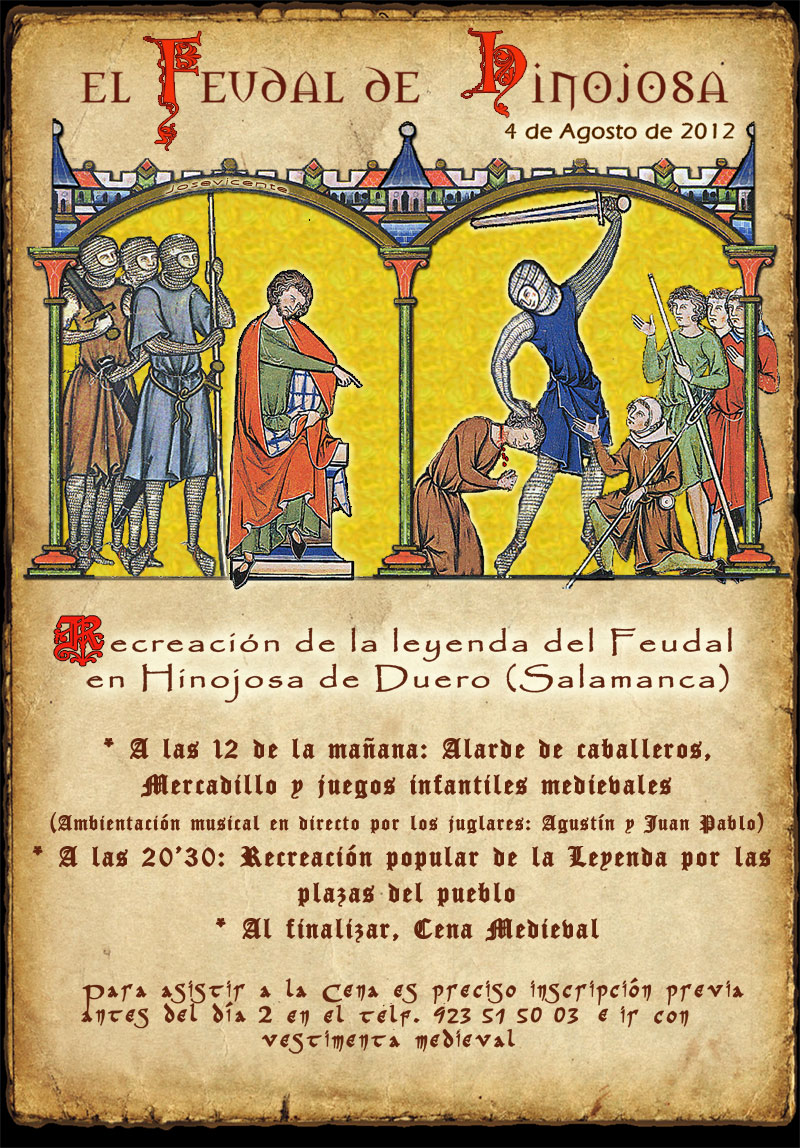 El Feudal de Hinojosa
4 de Agosto de 2012
Josevicente
Recreación de la leyenda del Feudal
en Hinojosa de Duero (Salamanca)
* A las 12 de la mañana: Alarde de caballeros,
Mercadillo y juegos infantiles medievales
(Ambientación musical en directo por los juglares: Agustín y Juan Pablo)
* A las 20'30: Recreación popular de la Leyenda por las
plazas del pueblo
* Al finalizar, Cena Medieval
Para asistir a la Cena es preciso inscripción previa
antes del día 2 en el telf. 923 51 50 03 e ir con
vestimenta medieval